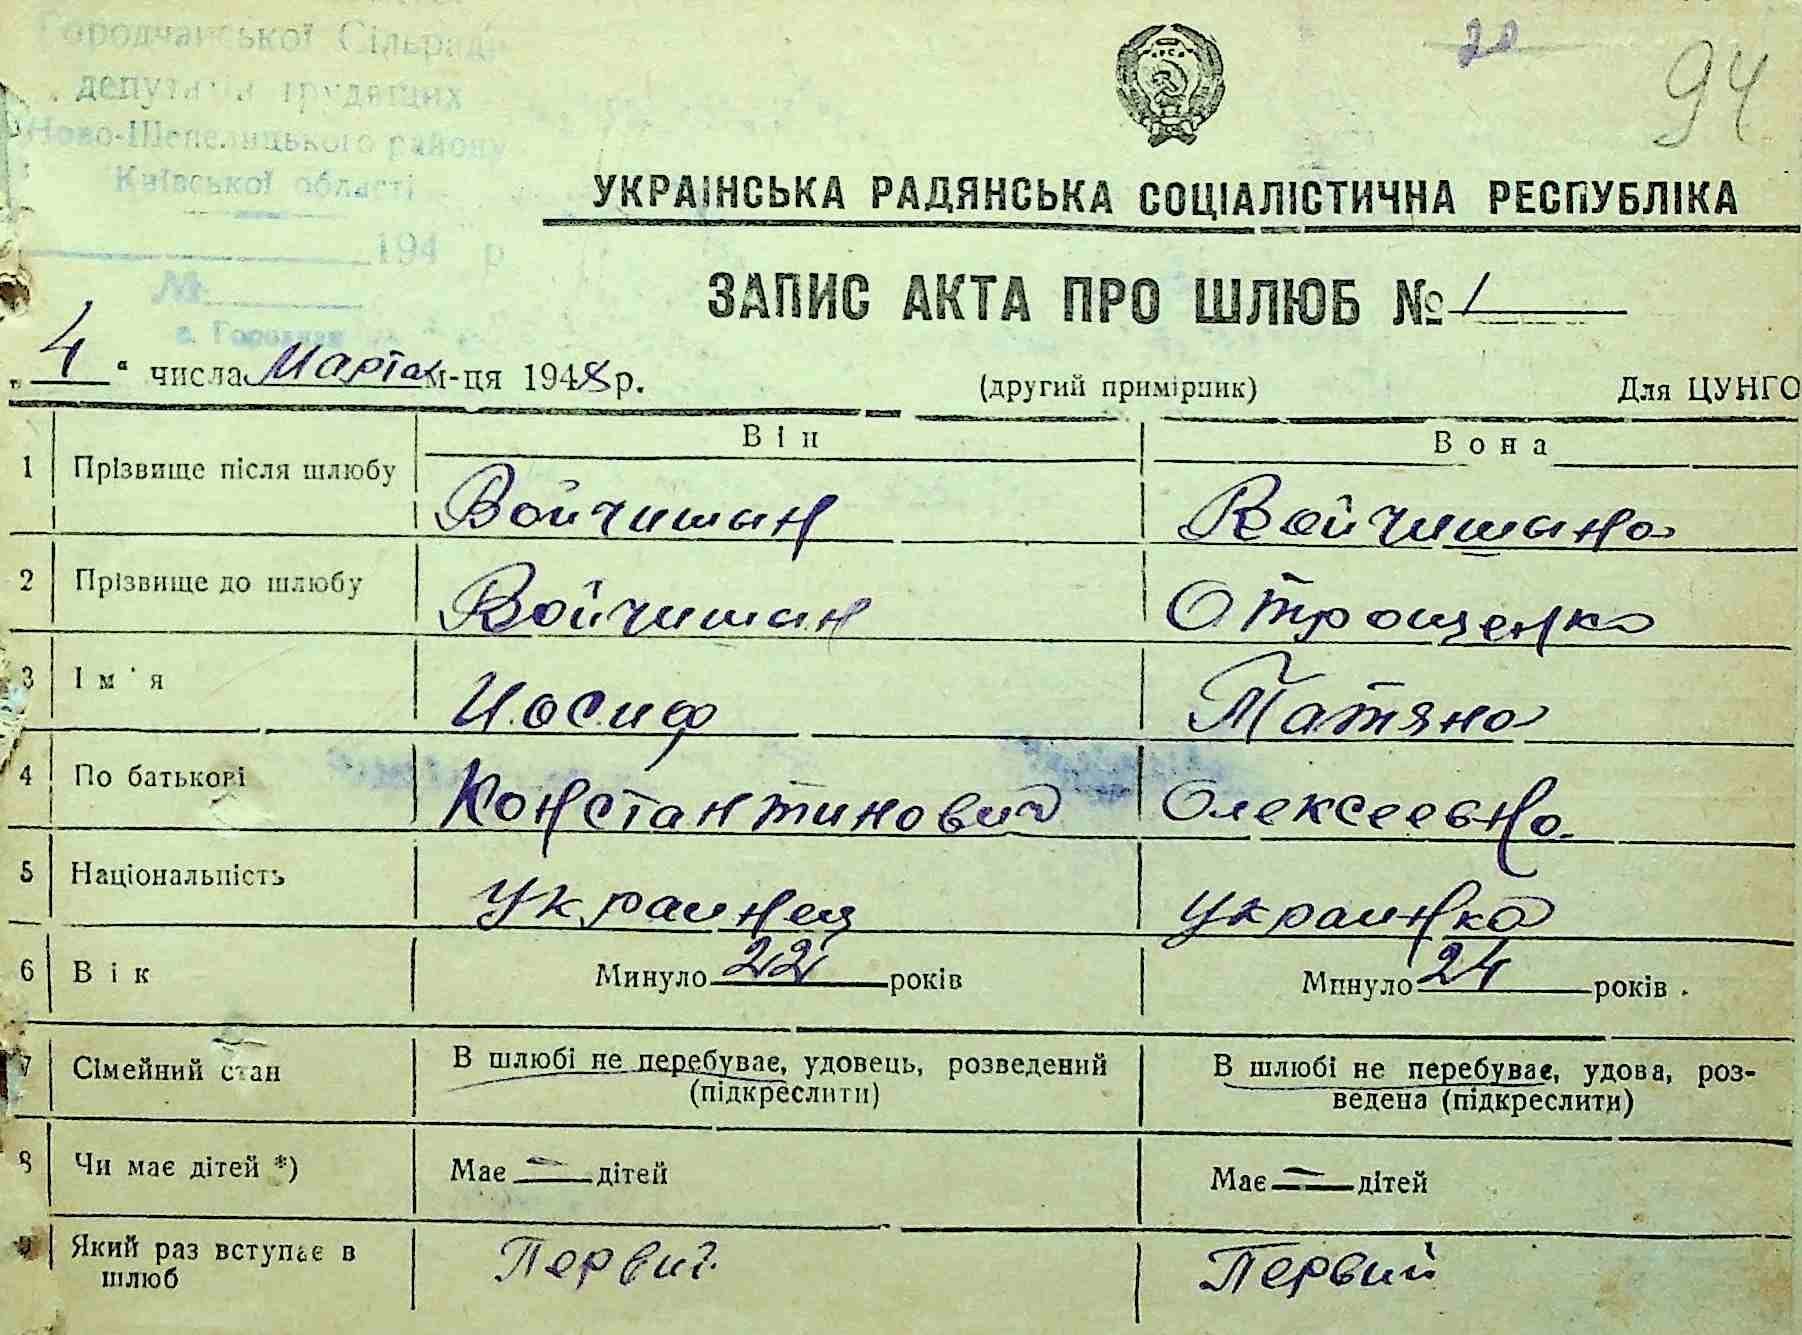 Городчанської Сільради
депутатів трудящих
Ново-Шепелицького району
Київської області
194 р
№
с. Городчан
20
94
УКРАЇНСЬКА РАДЯНСЬКА СОЦІАЛІСТИЧНА РЕСПУБЛІКА
ЗАПИС АКТА ПРО ШЛЮБ № 1
„ 4 “ числа Марта м-ця 1948 р. (другий примірник) Для ЦУНГО
Він Вона
1 Прізвище після шлюбу Войчишын Войчишына
2 Прізвище до шлюбу Войчишин Отрощенко
3 Ім'я Иосиф Татяна
4 По батькові Константинович Олексеевна
5 Національність Украинец Украинка
6 Вік Минуло 22 років Минуло 24 років
7 Сімейний стан В шлюбі не перебуває, удовець, розведений В шлюбі не перебуває, удова, роз-
(підкреслити) ведена (підкреслити)
8 Чи має дітей *) Має — дітей Має — дітей
9 Який раз вступає в Первий Первий
шлюб